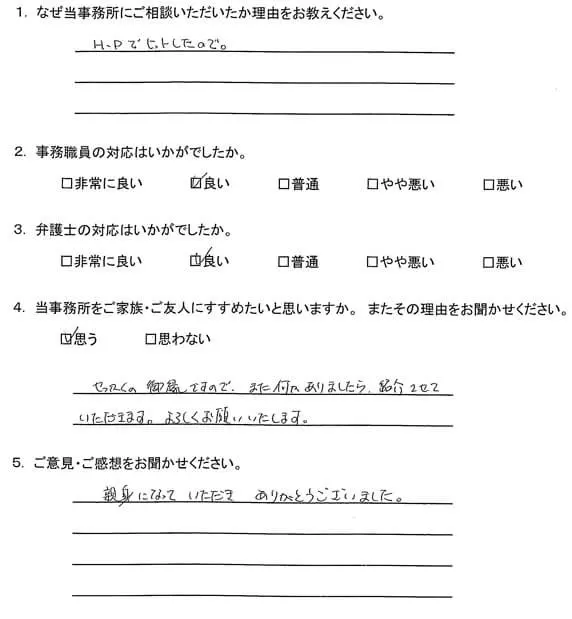 1. なぜ当事務所にご相談いただいたか理由をお教えください。
H.Pでヒットしたので。
2. 事務職員の対応はいかがでしたか。
□非常に良い ☑良い □普通 □やや悪い □悪い
3. 弁護士の対応はいかがでしたか。
□非常に良い ☑良い □普通 □やや悪い □悪い
4. 当事務所をご家族・ご友人にすすめたいと思いますか。 またその理由をお聞かせください。
☑思う □思わない
せっかくの御縁ですので、また何かありましたら、紹介させて
いただきます。よろしくお願いいたします。
5. ご意見・ご感想をお聞かせください。
親身になっていただき ありがとうございました。